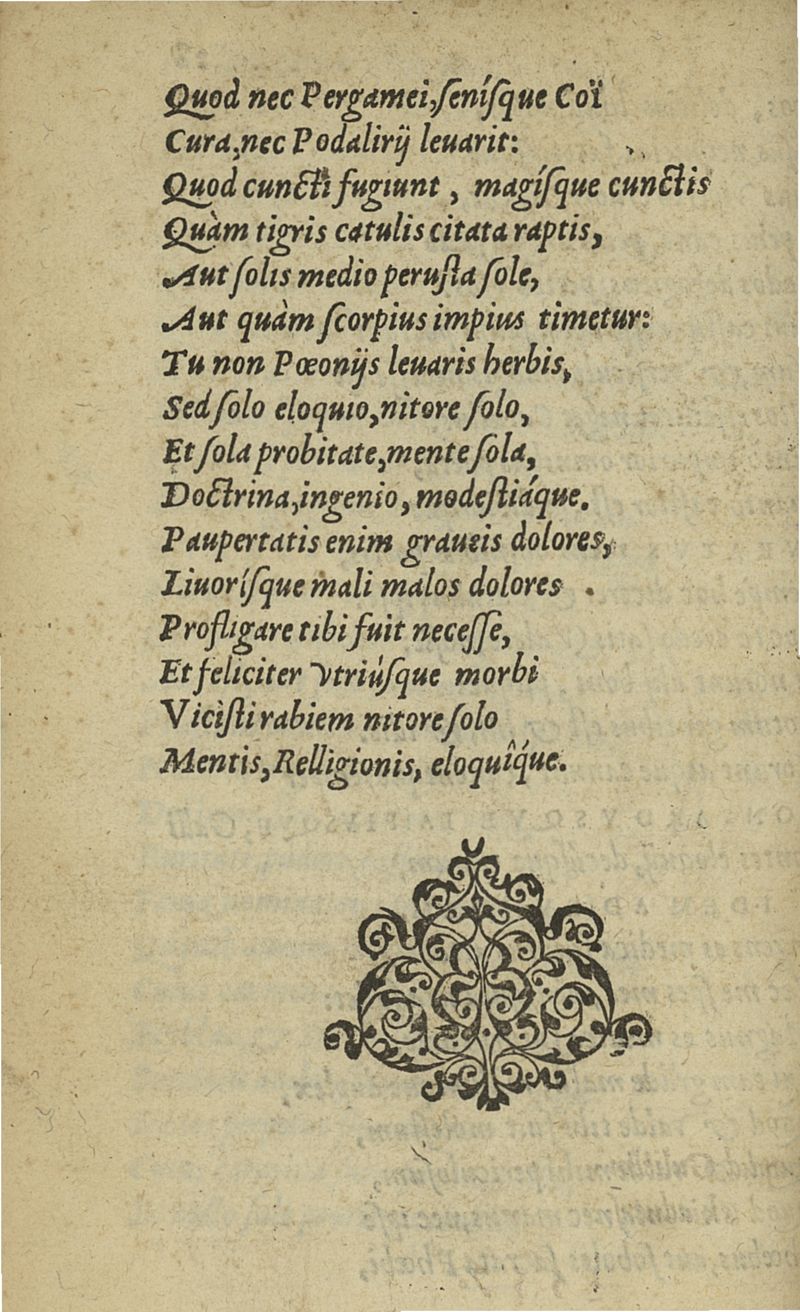 Quod nec Pergamei, ſeníſque Coï
Cura, nec Podalirij leuarit:
Quod cuncti fugiunt, magíſque cunctis
Quàm tigris catulis citata raptis,
Aut ſolis medio peruſta ſole,
Aut quàm ſcorpius impius timetur:
Tu non Pœonijs leuaris herbis,
Sed ſolo eloquio, nitore ſolo,
Et ſola probitate, mente ſola,
Doctrina, ingenio, modeſtiáque.
Paupertatis enim graueis dolores,
Liuoríſque mali malos dolores.
Profligare tibi fuit neceſſe,
Et feliciter vtriúſque morbi
Viciſti rabiem nitore ſolo
Mentis, Relligionis, eloquîque.